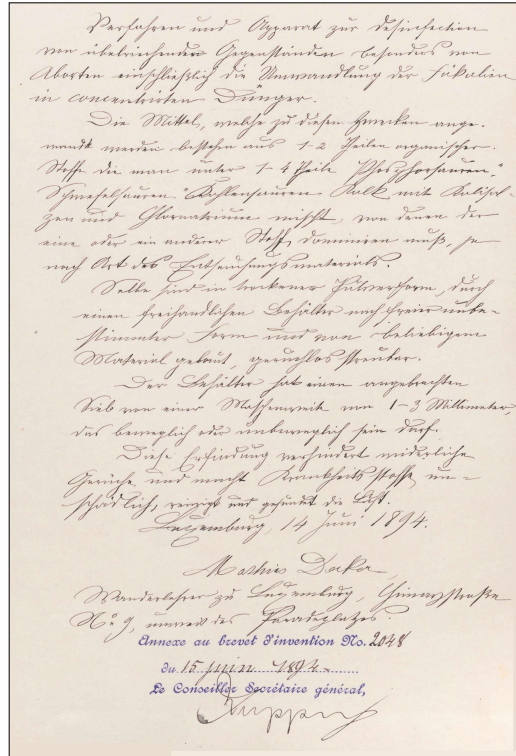 Verfahren und Apparat zur Desinfection
von übelriechenden Gegenständen besonders von
Aborten einschließlich die Umwandlung der Fäkalien
in concentrirten Dünger.
Die Mittel, welche zu diesen Zwecken ange-
wandt werden bestehen aus 1-2 Theilen organischer
Stoffe die man unter 1-4 Theile "Phosphorsauren,"
Schwefelsauren "Kohlensauren Kalk mit Kalisal-
zen und Chlornatrium mischt, von denen der
eine oder ein anderer Stoff dominieren muß, je
nach Art des
Selbe sind in trockener Pulverform, durch
einen freihandlichen Behälter nach freier unbe-
stimmter Form und von beliebigem
Material gebaut, geruchlos streubar.
Der Behälter hat einen angebrachten
Sieb von einer Maschenweite von 1-3 Millimeter,
das beweglich oder unbeweglich sein darf.
Diese Erfindung verhindert widerliche
Gerüche und macht Krankheitsstoffe un-
schädlich, reinigt und gesundet die Luft.
Luxemburg, 14 Juni 1894.
Mathias Decker
Wanderlehrer zu Luxemburg, Chimaystraße
No 9, unweit des Paradeplatzes.
Annexe au brevet d'invention No. 2048
du 15 juin 1894
Le Conseiller Secrétaire général,